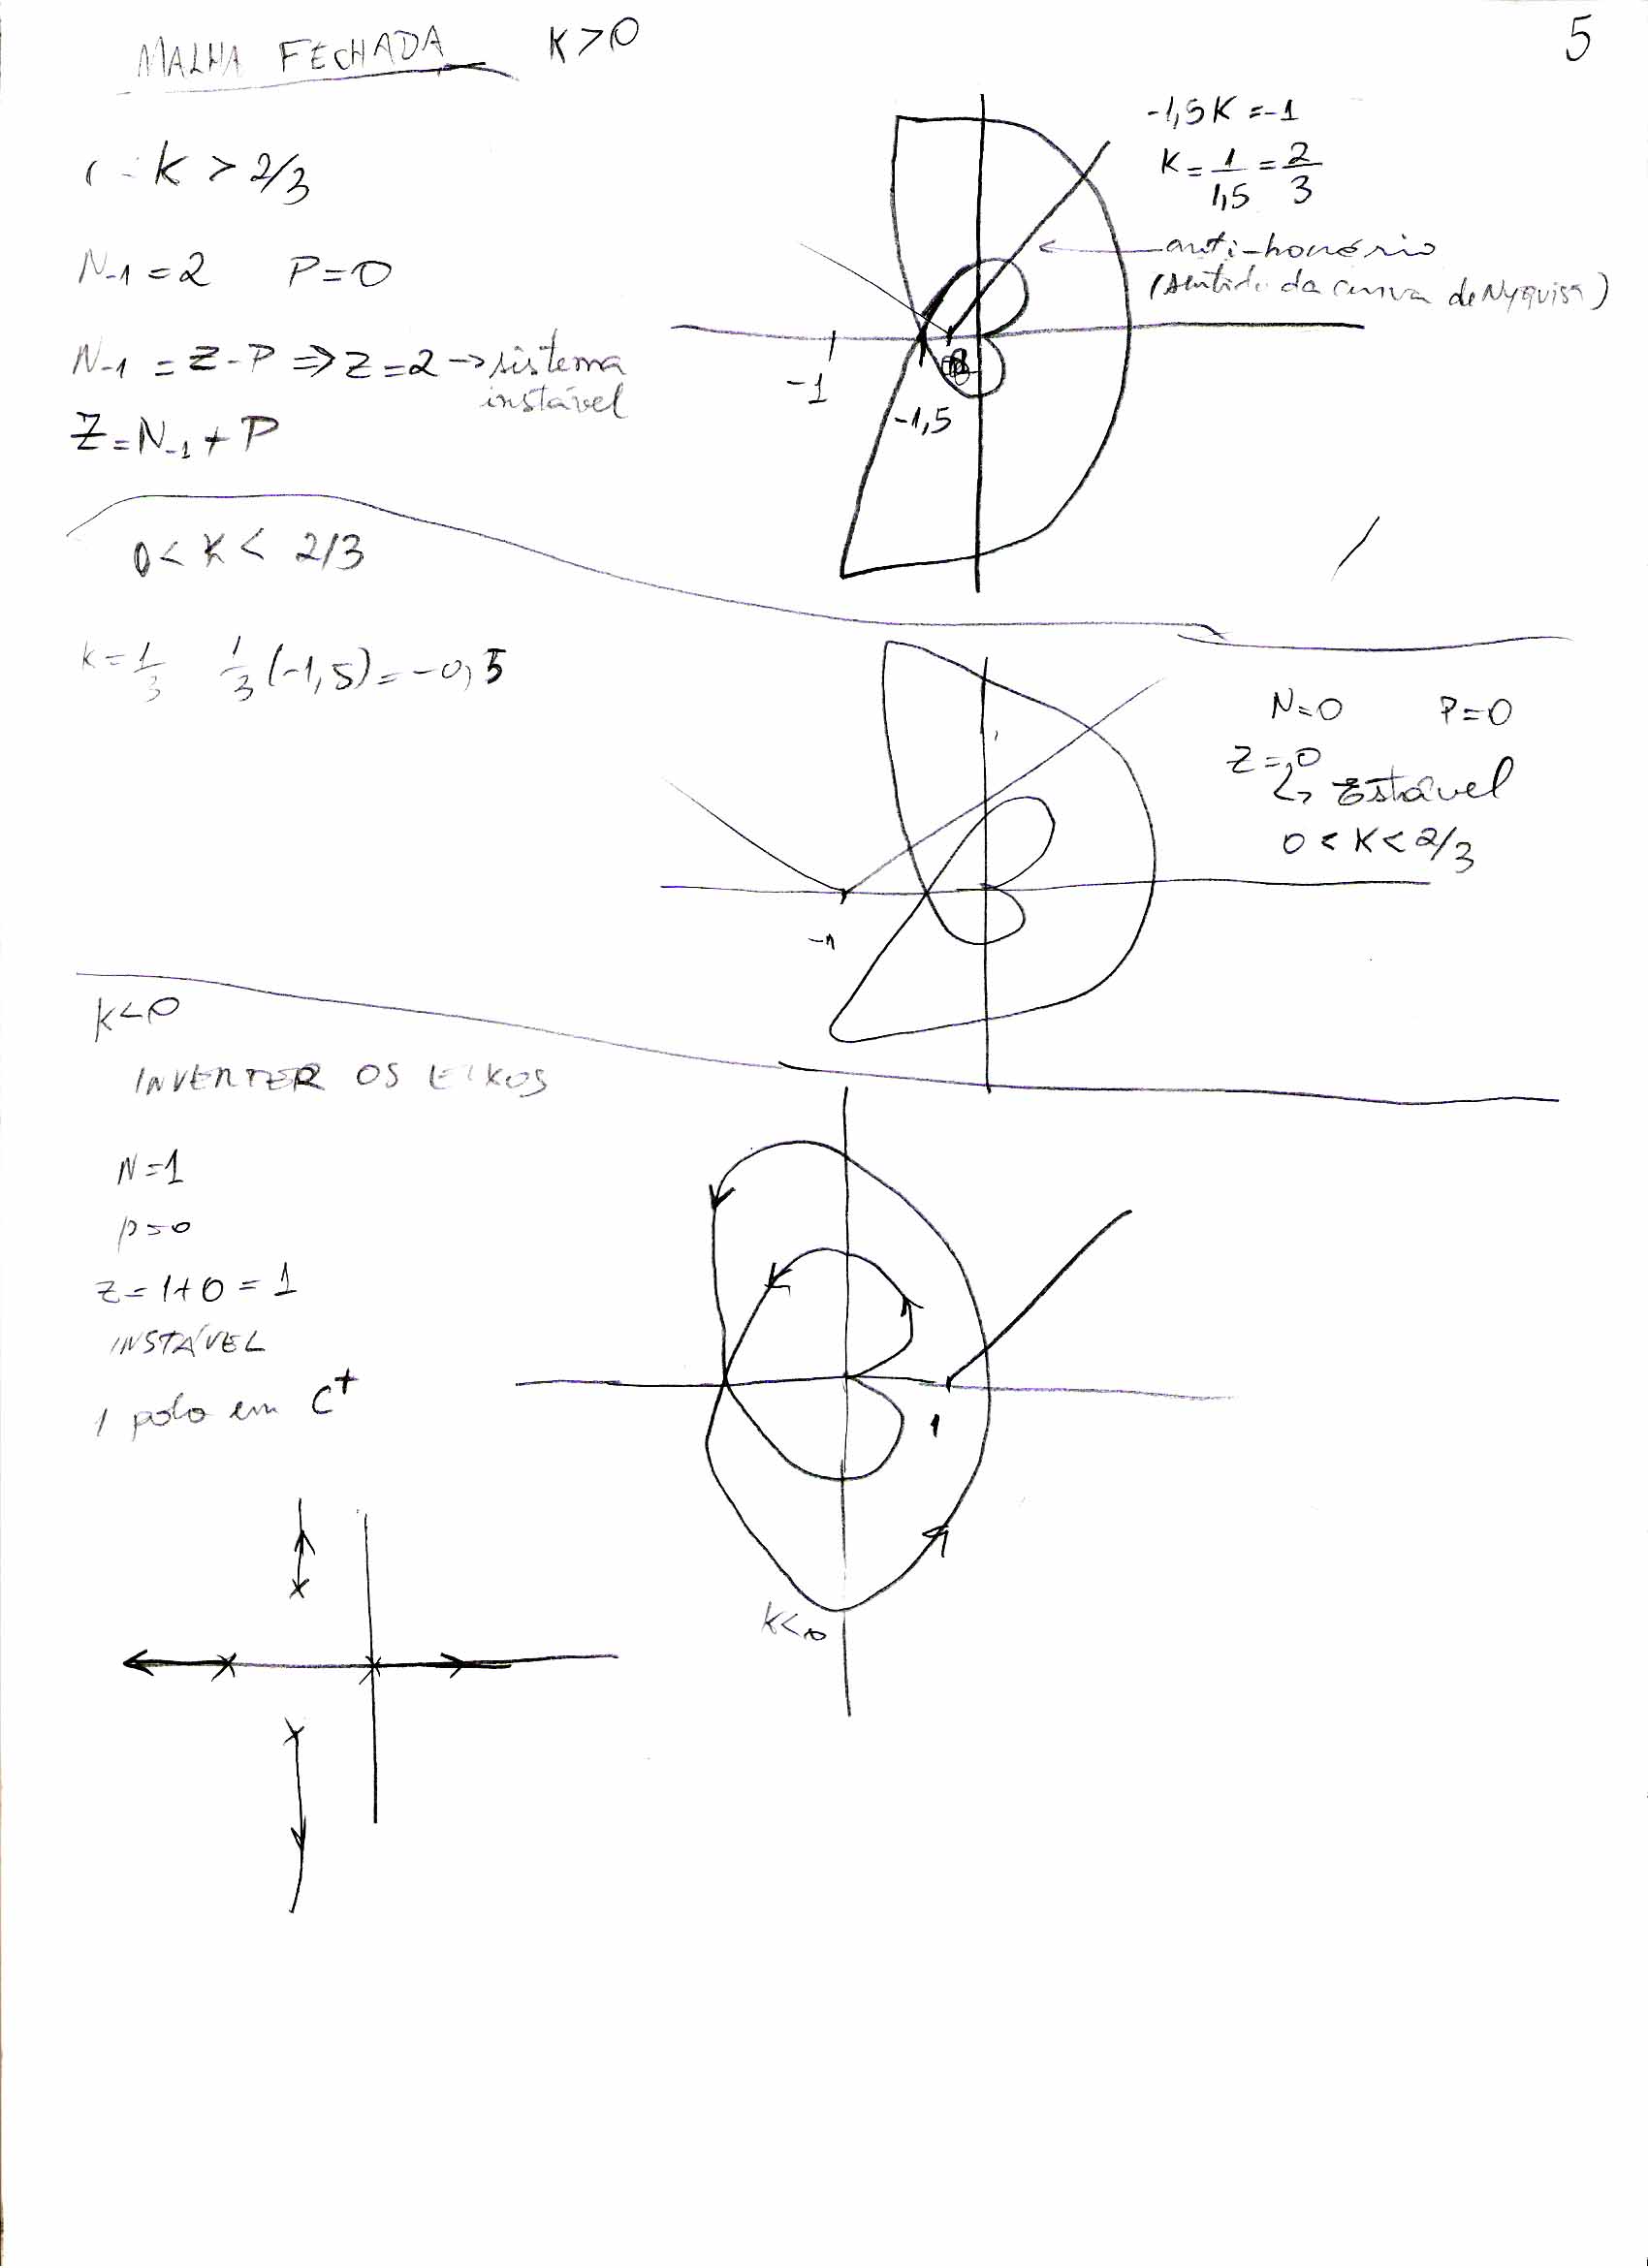 MALHA FECHADA K>0
5
K > 2/3
N-1 = 2 P=0
N-1 = Z-P => Z=2 -> sistema
instável
Z = N-1 + P
-1,5K = -1
K = 1/1,5 = 2/3
anti-horário
(sentido da curva de Nyquist)
-1
-1,5
0 < K < 2/3
K = 1/3 1/3 (-1,5) = -0,5
N=0 P=0
Z = 0
↳ Estável
0 < K < 2/3
-1
K<0
INVERTER OS EIXOS
N=1
p=0
Z = 1+0 = 1
INSTÁVEL
1 polo em C+
1
K<0